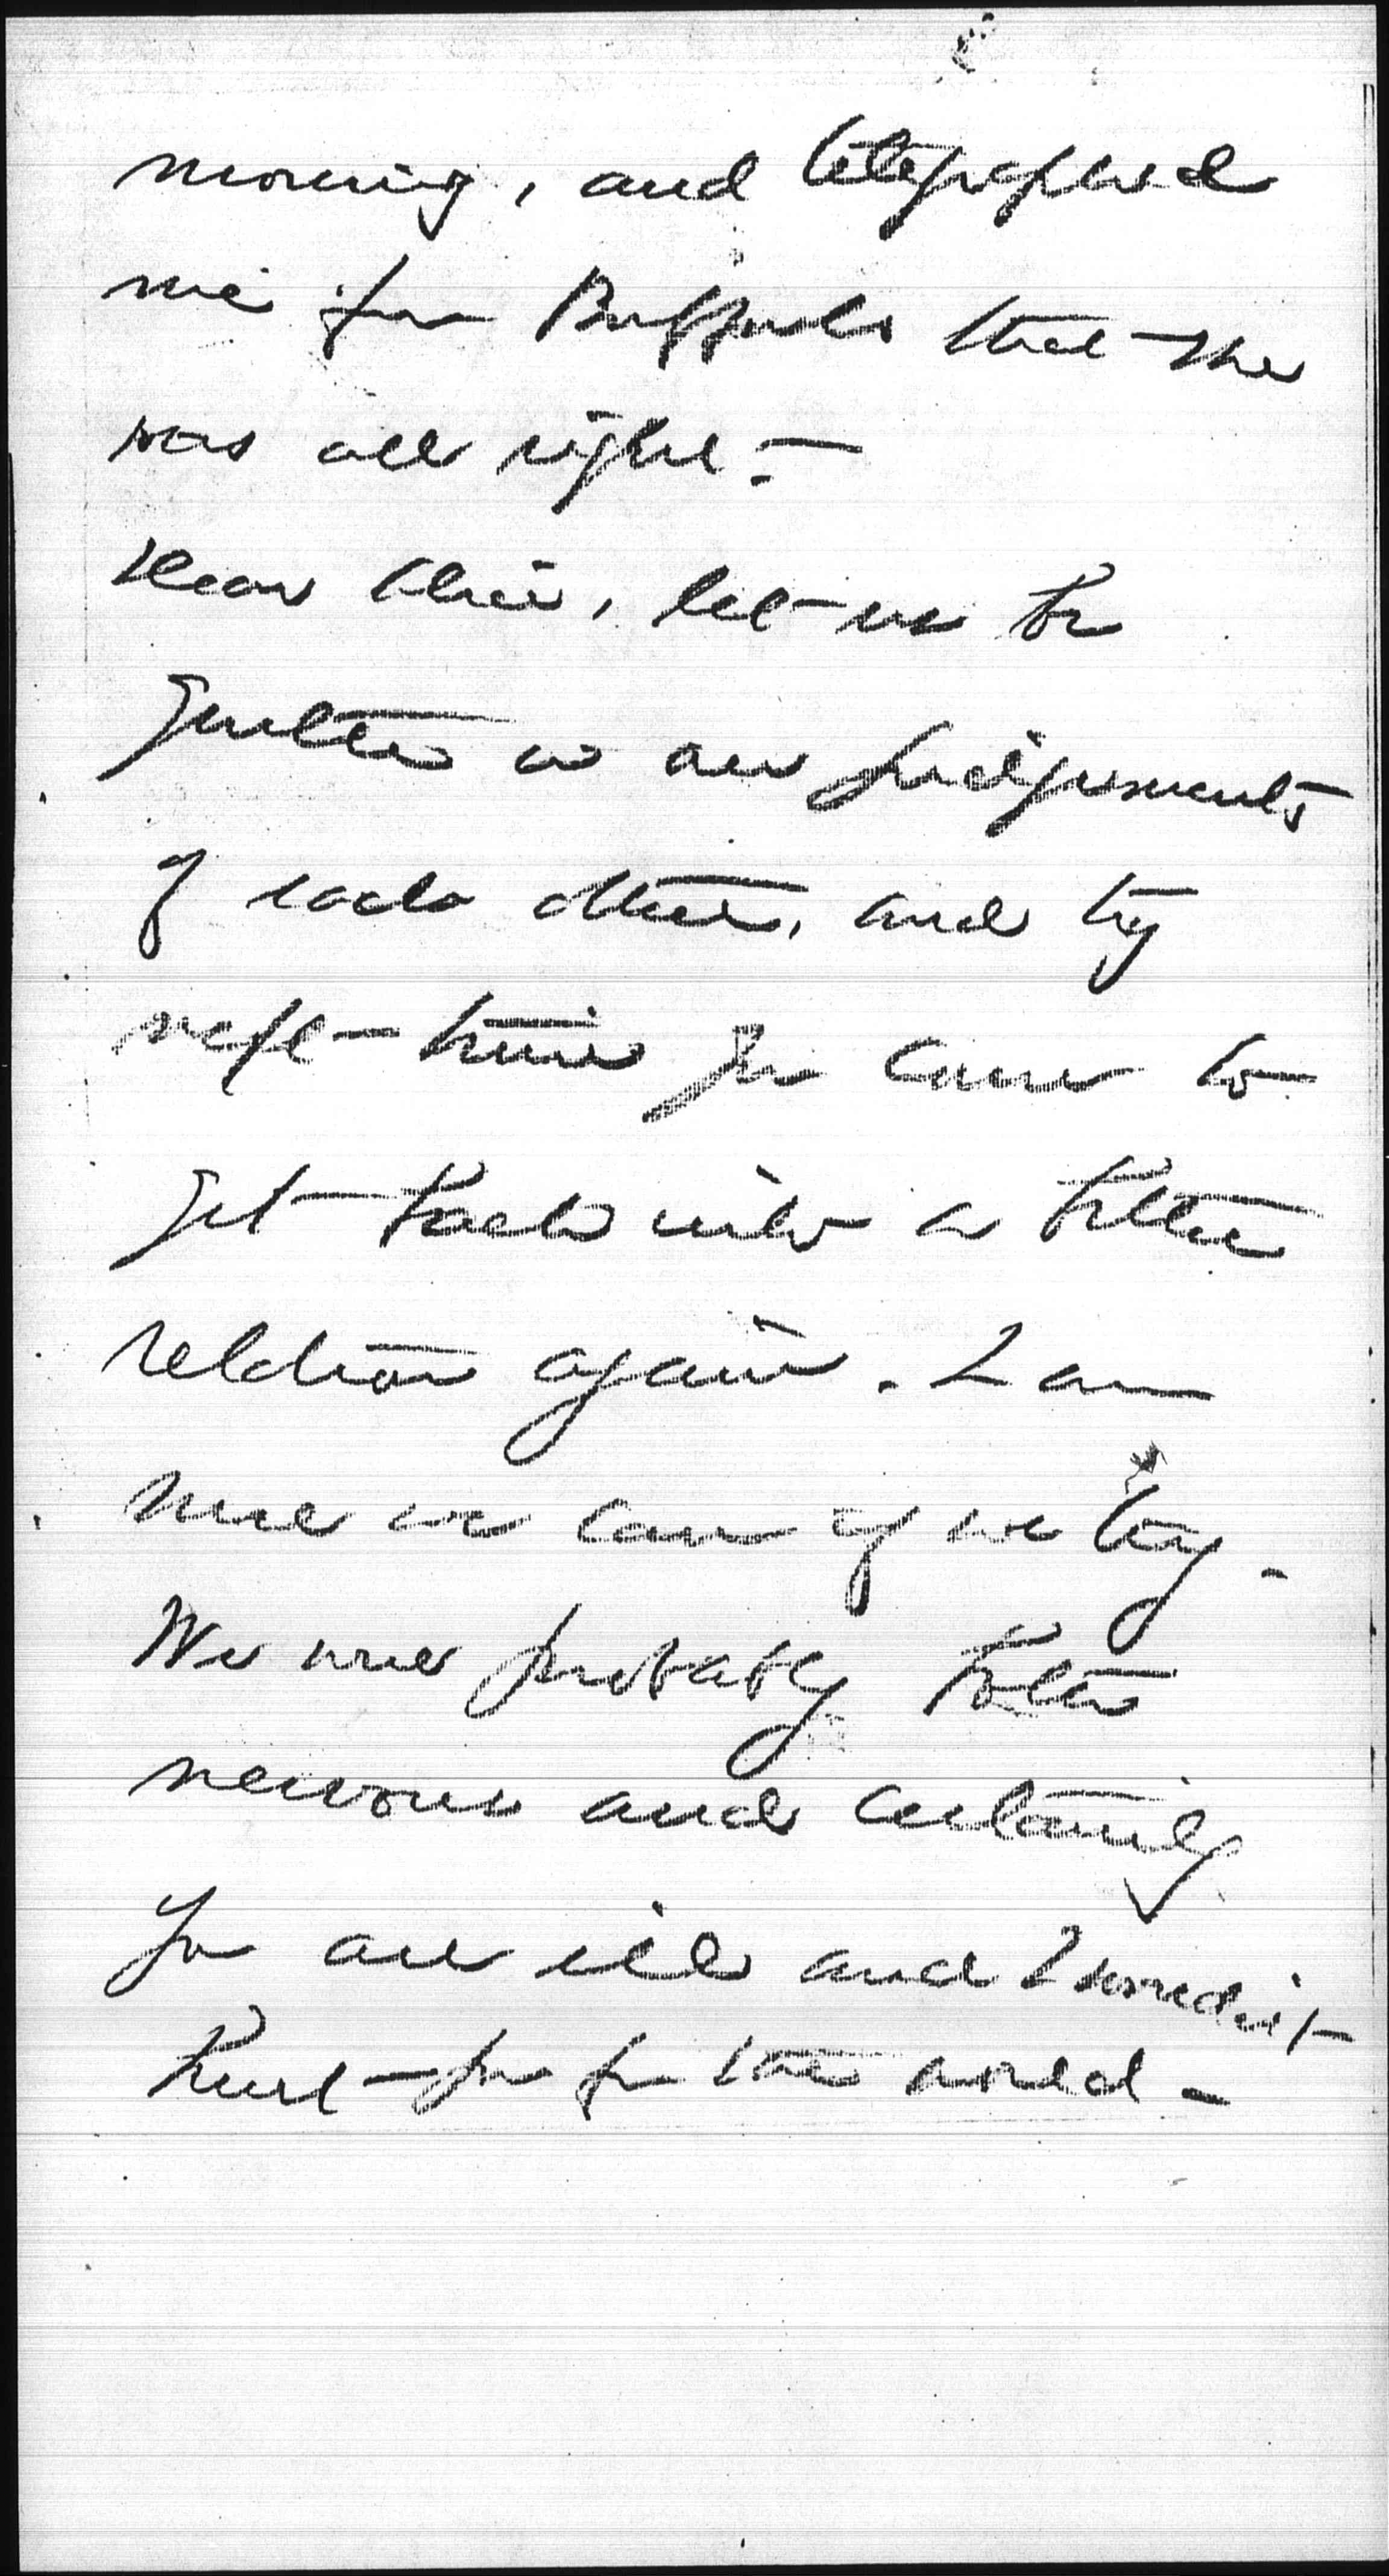 morning, and telegraphed
me from Buffalo that she
was all right. —
Dear, let us be
gentler in our judgements
of each other, and try
next time you come to
get back into a better
relation again. I am
sure we can if we try.
We are probably both
nervous and certainly
you are ill and I wouldn't
hurt you for the world —